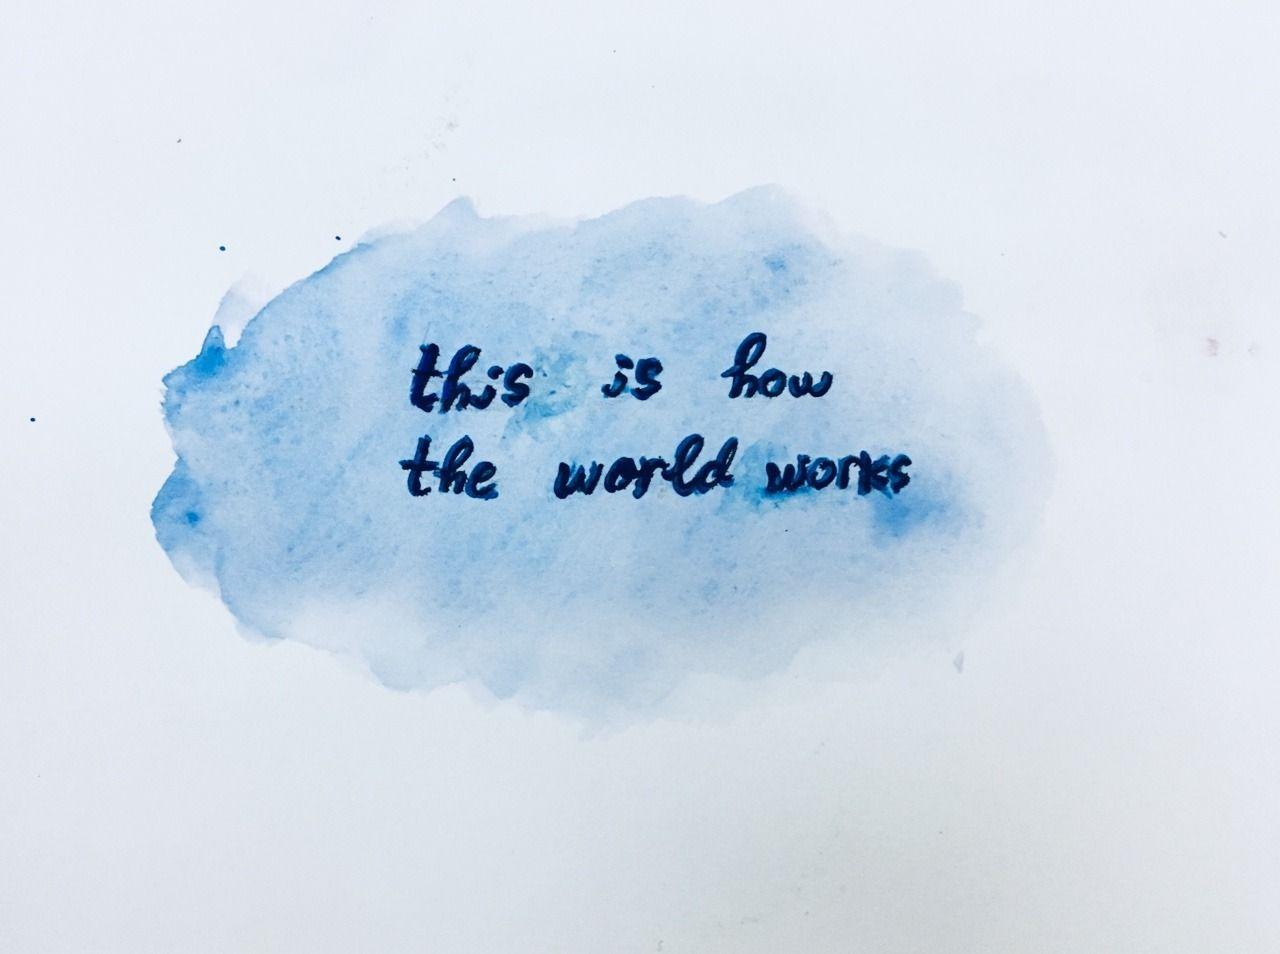 this is how
the world works